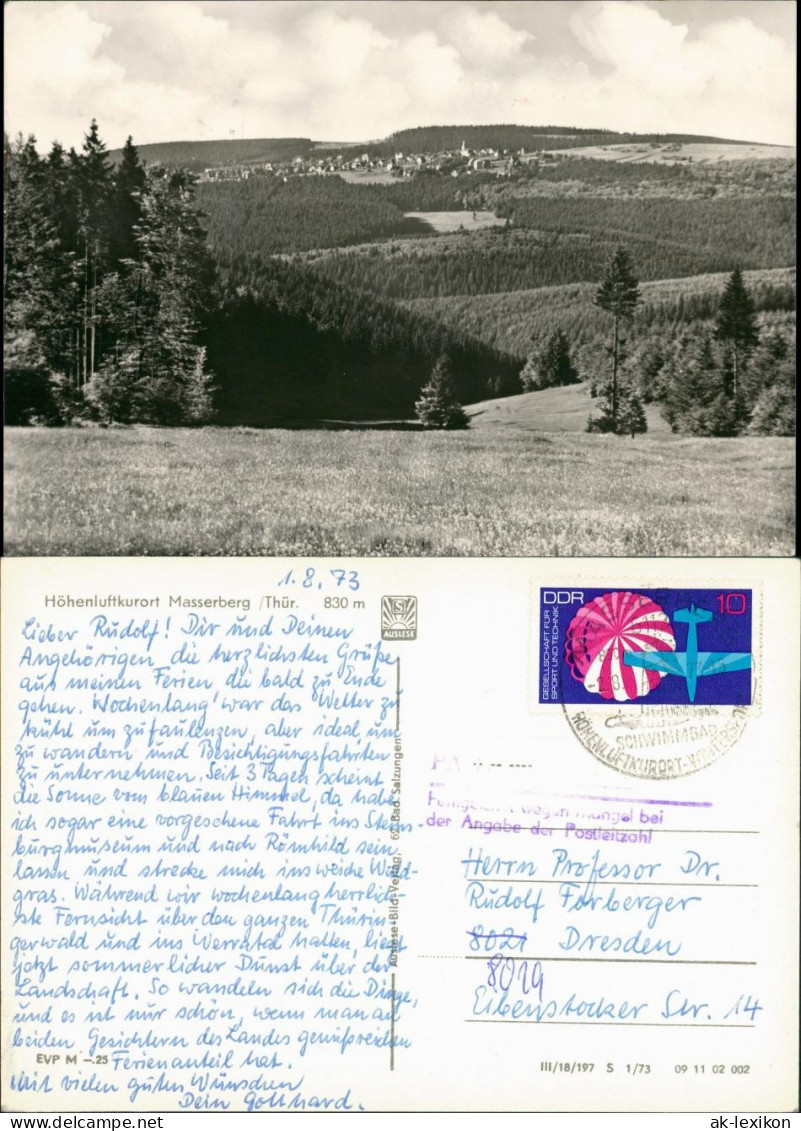 1.8.73
Höhenluftkurort Masserberg /Thür. 830 m
S
AUSLESE
Lieber Rudolf! Dir und Deinen
Angehörigen die herzlichsten Grüße
aus meinen Ferien, die bald zu Ende
gehen. Wochenlang war das Wetter zu
kühl um zu faulenzen, aber ideal um
zu wandern und Besichtigungsfahrten
zu unternehmen. Seit 3 Tagen scheint
die Sonne vom blauen Himmel, da habe
ich sogar eine vorgesehene Fahrt ins Steins-
burgmuseum und nach Römhild sein
lassen und strecke mich ins weiche Wald-
gras. Während wir wochenlang herrlich-
ste Fernsicht über den ganzen Thürin-
gerwald und ins Werratal hatten, liegt
jetzt sommerlicher Dunst über der
Landschaft. So wandeln sich die Dinge,
und es ist nur schön, wenn man an
beiden Gesichtern des Landes genußreichen
Ferienanteil hat.
Mit vielen guten Wünschen
Dein Gotthard.
EVP M –.25
Auslese-Bild-Verlag, 62 Bad Salzungen
DDR 10
GESELLSCHAFT FÜR
SPORT UND TECHNIK
SCHWIMMBAD
HÖHENLUFTKURORT
wegen Mangel bei
der Angabe der Postleitzahl
Herrn Professor Dr.
Rudolf Forberger
8021 Dresden
8019
Eibenstocker Str. 14
III/18/197 S 1/73 09 11 02 002
ak-lexikon
ak-lexikon.com